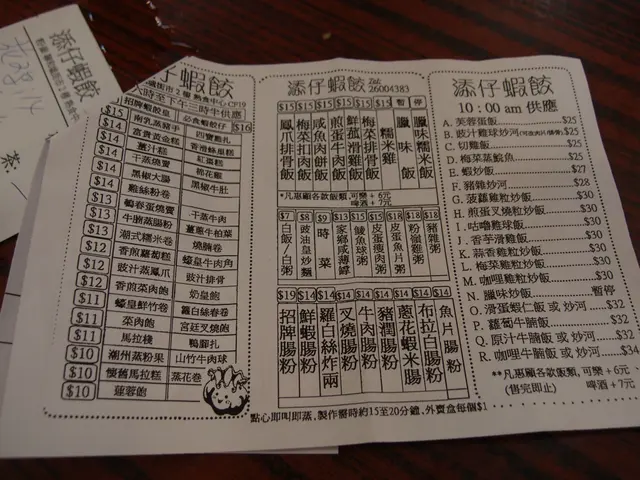 添仔蝦餃
仔蝦餃
街市2樓熟食中心CF19
六時至下午三時牛供應
$15 招牌蝦餃皇 必食蝦餃仔 $16
$15 南乳蒸豬手 四寶雞扎
$14 富貴黃金糕 香滑蔴蓉糕
$14 薑汁糕 紅蛋糕
$14 干蒸燒賣 棉花雞
$14 黑椒大腸 黑椒牛肚
$14 雞絲粉卷
$13 鵪春蛋燒賣 干蒸牛肉
$13 牛脷蒸腸粉 薑蔥牛柏葉
$13 潮式糯米卷 燒腩卷
$12 香煎蘿蔔糕 蠔皇牛肉角
$12 豉汁蒸鳳爪 豉汁排骨
$12 香煎菜肉飽 奶皇飽
$11 蠔皇鮮竹卷
$11 菜肉飽 宮廷叉燒飽
$11 馬拉棧 鴨腳扎
$10 潮州蒸粉果 山竹牛肉球
$10 懷舊馬拉糕 蒸花卷
$10 蓮蓉飽
添仔蝦餃 Tel: 26004383
$15 鳳爪排骨飯
$15 梅菜扣肉飯
$15 咸魚肉餅飯
$15 煎蛋牛肉飯
$15 鮮菇滑雞飯
$15 梅菜排骨飯
$15 糯米雞
暫停 臘味飯
$15 臘味糯米飯
*凡惠顧各款飯類,可樂+6元
啤酒+7元
$7 白飯/白粥
$8 豉油皇炒麵
$9 時菜
$13 家鄉咸薄罉
$15 鯪魚球粥
$15 皮蛋瘦肉粥
$18 皮蛋魚片粥
$18 粉嶺雞粥
$18 豬雜粥
$19 招牌腸粉
$14 鮮蝦腸粉
$14 羅白絲炸兩
$14 叉燒腸粉
$14 牛肉腸粉
$14 豬潤腸粉
$14 蔥花蝦米腸
$14 布拉白腸粉
$14 魚片腸粉
點心即叫即蒸,製作需時約15至20分鐘,外賣盒每個$1
添仔蝦餃
10:00 am 供應
A. 芙蓉蛋飯 $25
B. 豉汁雞球炒河 $25
C. 切雞飯 $25
D. 梅菜蒸鯇魚 $25
E. 蝦炒飯 $27
F. 豬雜炒河 $28
G. 菠蘿雞粒炒飯 $30
H. 煎蛋叉燒粒炒飯 $30
I. 咕嚕雞球飯 $30
J. 香芋滑雞飯 $30
K. 蒜香雞粒炒飯 $30
L. 梅菜雞粒炒飯 $30
M. 咖喱雞粒炒飯 $30
N. 臘味炒飯 暫停
O. 滑蛋蝦仁飯 或 炒河 $32
P. 蘿蔔牛腩飯 $32
Q. 原汁牛腩飯 或 炒河 $32
R. 咖喱牛腩飯 或 炒河 $34
**凡惠顧各款飯類,可樂+6元
(售完即止) 啤酒+7元